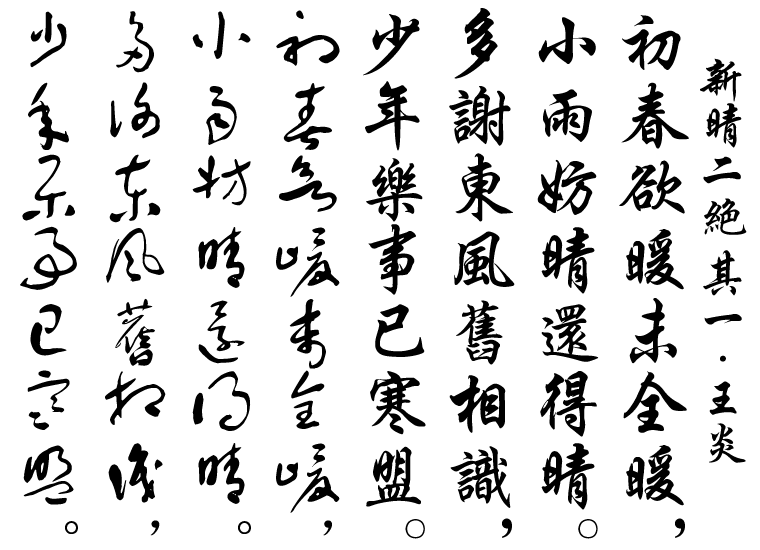 新晴二絶其一·王炎
初春欲暖未全暖，
小雨妨晴還得晴。
多謝東風舊相識，
少年樂事已寒盟。
初春欲暖未全暖，
小雨妨晴還得晴。
多謝東風舊相識，
少年樂事已寒盟。